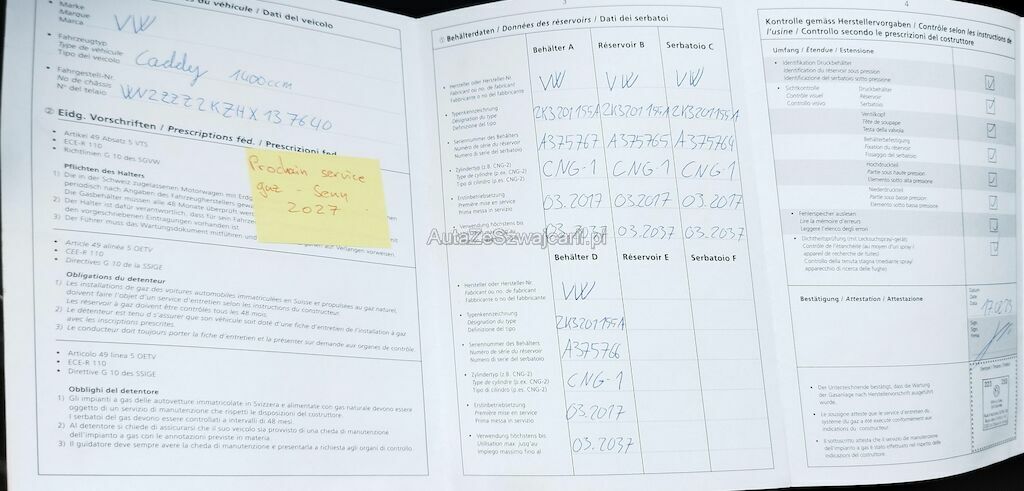 du véhicule / Dati del veicolo
Marke
Marque
Marca
VW
Fahrzeugtyp
Type de véhicule
Tipo del veicolo
Caddy 1400ccm
Fahrgestell-Nr.
No de châssis
N° del telaio
② Eidg. Vorschriften / Prescriptions féd. / Prescrizioni fed.
• Artikel 49 Absatz 5 VTS
• ECE-R 110
• Richtlinien G 10 des SGVW
Prochain service
gaz - Senn
2027
Pflichten des Halters
1) Die in der Schweiz zugelassenen Motorwagen mit Erdg
periodisch nach Angaben des Fahrzeugherstellers gewa
Die Gasbehälter müssen alle 48 Monate überprüft werd
2) Der Halter ist dafür verantwortlich, dass für sein Fahrze
den vorgeschriebenen Eintragungen vorhanden ist.
3) Der Führer muss das Wartungsdokument mitführen und
auf Verlangen vorweisen.
• Article 49 alinéa 5 OETV
• CEE-R 110
• Directives G 10 de la SSIGE
Obligations du détenteur
1) Les installations de gaz des voitures automobiles immatriculées en Suisse et propulsées au gaz naturel
doivent faire l'objet d'un service d'entretien selon les instructions du constructeur.
Les réservoirs à gaz doivent être contrôlés tous les 48 mois.
2) Le détenteur est tenu d'assurer que son véhicule soit doté d'une fiche d'entretien de l'installation à gaz
avec les inscriptions prescrites.
3) Le conducteur doit toujours porter la fiche d'entretien et la présenter sur demande aux organes de contrôle.
• Articolo 49 linea 5 OETV
• ECE-R 110
• Direttive G 10 del SSIGE
Obblighi del detentore
1) Gli impianti a gas delle autovetture immatricolate in Svizzera e alimentate con gas naturale devono essere
oggetto di un servizio di manutenzione che rispetti le disposizioni del costruttore.
I serbatoi del gas devono essere controllati a intervalli di 48 mesi.
2) Al detentore si chiede di assicurarsi che il suo veicolo sia provvisto di una scheda di manutenzione
dell'impianto a gas con le annotazioni previste in materia.
3) Il guidatore deve sempre avere la scheda di manutenzione e presentarla a richiesta agli organi di controllo.
3
① Behälterdaten / Données des réservoirs / Dati dei serbatoi
Behälter A Réservoir B Serbatoio C
• Hersteller oder Hersteller-Nr.
Fabricant ou no. de fabricant
Fabbricante o no del fabbricante
VW VW VW
• Typenkennzeichnung
Désignation du type
Definizione del tipo
2K3201155A 2K3201155A 2K3201155A
• Seriennummer des Behälters
Numéro de série du réservoir
Numero di serie del serbatoio
A375767 A375765 A375764
• Zylindertyp (z.B. CNG-2)
Type de cylindre (p.ex. CNG-2)
Tipo di cilindro (p.es. CNG-2)
CNG-1 CNG-1 CNG-1
• Erstinbetriebsetzung
Première mise en service
Prima messa in servizio
03.2017 03.2017 03.2017
• Verwendung höchstens bis
03.2037 03.2037 03.2037
AutaZeSzwajcarii.pl
Behälter D Réservoir E Serbatoio F
• Hersteller oder Hersteller-Nr.
Fabricant ou no. de fabricant
Fabbricante o no del fabbricante
VW
• Typenkennzeichnung
Désignation du type
Definizione del tipo
2K3201155A
• Seriennummer des Behälters
Numéro de série du réservoir
Numero di serie del serbatoio
A375766
• Zylindertyp (z.B. CNG-2)
Type de cylindre (p.ex. CNG-2)
Tipo di cilindro (p.es. CNG-2)
CNG-1
• Erstinbetriebsetzung
Première mise en service
Prima messa in servizio
03.2017
• Verwendung höchstens bis
Utilisation max. jusqu'au
Impiego massimo fino al
03.2037
4
Kontrolle gemäss Herstellervorgaben / Contrôle selon les instructions de
l'usine / Controllo secondo le prescrizioni del costruttore
Umfang / Étendue / Estensione
• Identifikation Druckbehälter
Identification du réservoir sous pression
Identificazione del serbatoio sotto pressione
• Sichtkontrolle Druckbehälter
Contrôle visuel Réservoir
Controllo visivo Serbatoio
Ventilkopf
Tête de soupape
Testa della valvola
Behälterbefestigung
Fixation du réservoir
Fissaggio del serbatoio
Hochdruckteil
Partie sous haute pression
Elemento sotto alta pressione
Niederdruckteil
Partie sous basse pression
Elemento sotto bassa pressione
• Fehlerspeicher auslesen
Lire la mémoire d'erreurs
Leggere l'elenco degli errori
• Dichtheitsprüfung (mit Lecksuchspray/-gerät)
Contrôle de l'étanchéité (au moyen d'un spray /
appareil de recherche de fuites)
Controllo della tenuta stagna (mediante spray/
apparecchio di ricerca delle fughe)
Bestätigung / Attestation / Attestazione
Datum
Date
Data
• Der Unterzeichnende bestätigt, dass die Wartung
der Gasanlage nach Herstellervorschrift ausgeführt
wurde.
• Le soussigné atteste que le service d'entretien du
système du gaz a été exécuté conformément aux
indications du constructeur.
• Il sottoscritto attesta che il servizio di manutenzione
dell'impianto a gas è stato effettuato nel rispetto delle
indicazioni del costruttore.